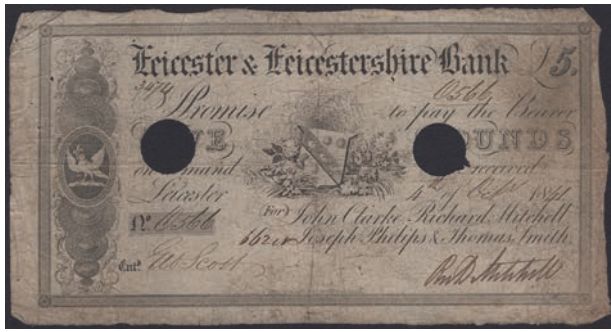 Leicester & Leicestershire Bank £5.
3474 0566
I Promise to pay the Bearer
VE OUNDS
on demand received
Leicester 4th of Octr 1841
No. 0566 (For) John Clarke, Richard Mitchell
Joseph Philips & Thomas Smith.
Entd. Geo Scott
Richd Mitchell